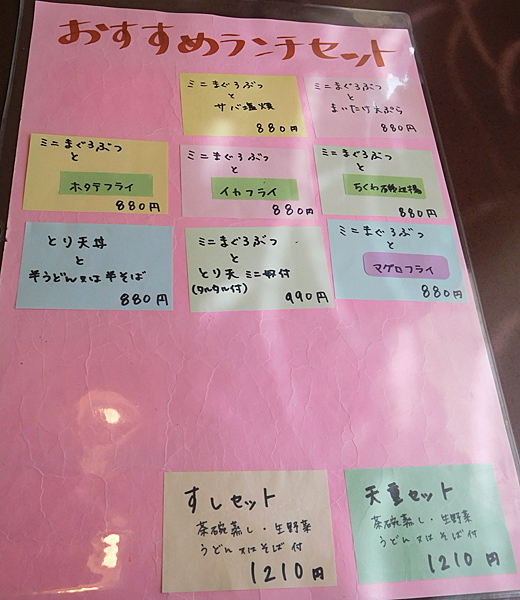 おすすめランチセット
ミニまぐろぶつ
と
サバ塩焼
880円
ミニまぐろぶつ
と
まいたけ天ぷら
880円
ミニまぐろぶつ
と
ホタテフライ
880円
ミニまぐろぶつ
と
イカフライ
880円
ミニまぐろぶつ
と
ちくわ磯辺揚
880円
とり天丼
と
半うどん又は半そば
880円
ミニまぐろぶつ
と
とり天ミニ奴付
(タルタル付)
990円
ミニまぐろぶつ
と
マグロフライ
880円
すしセット
茶碗蒸し・生野菜
うどん又はそば付
1210円
天重セット
茶碗蒸し・生野菜
うどん又はそば付
1210円